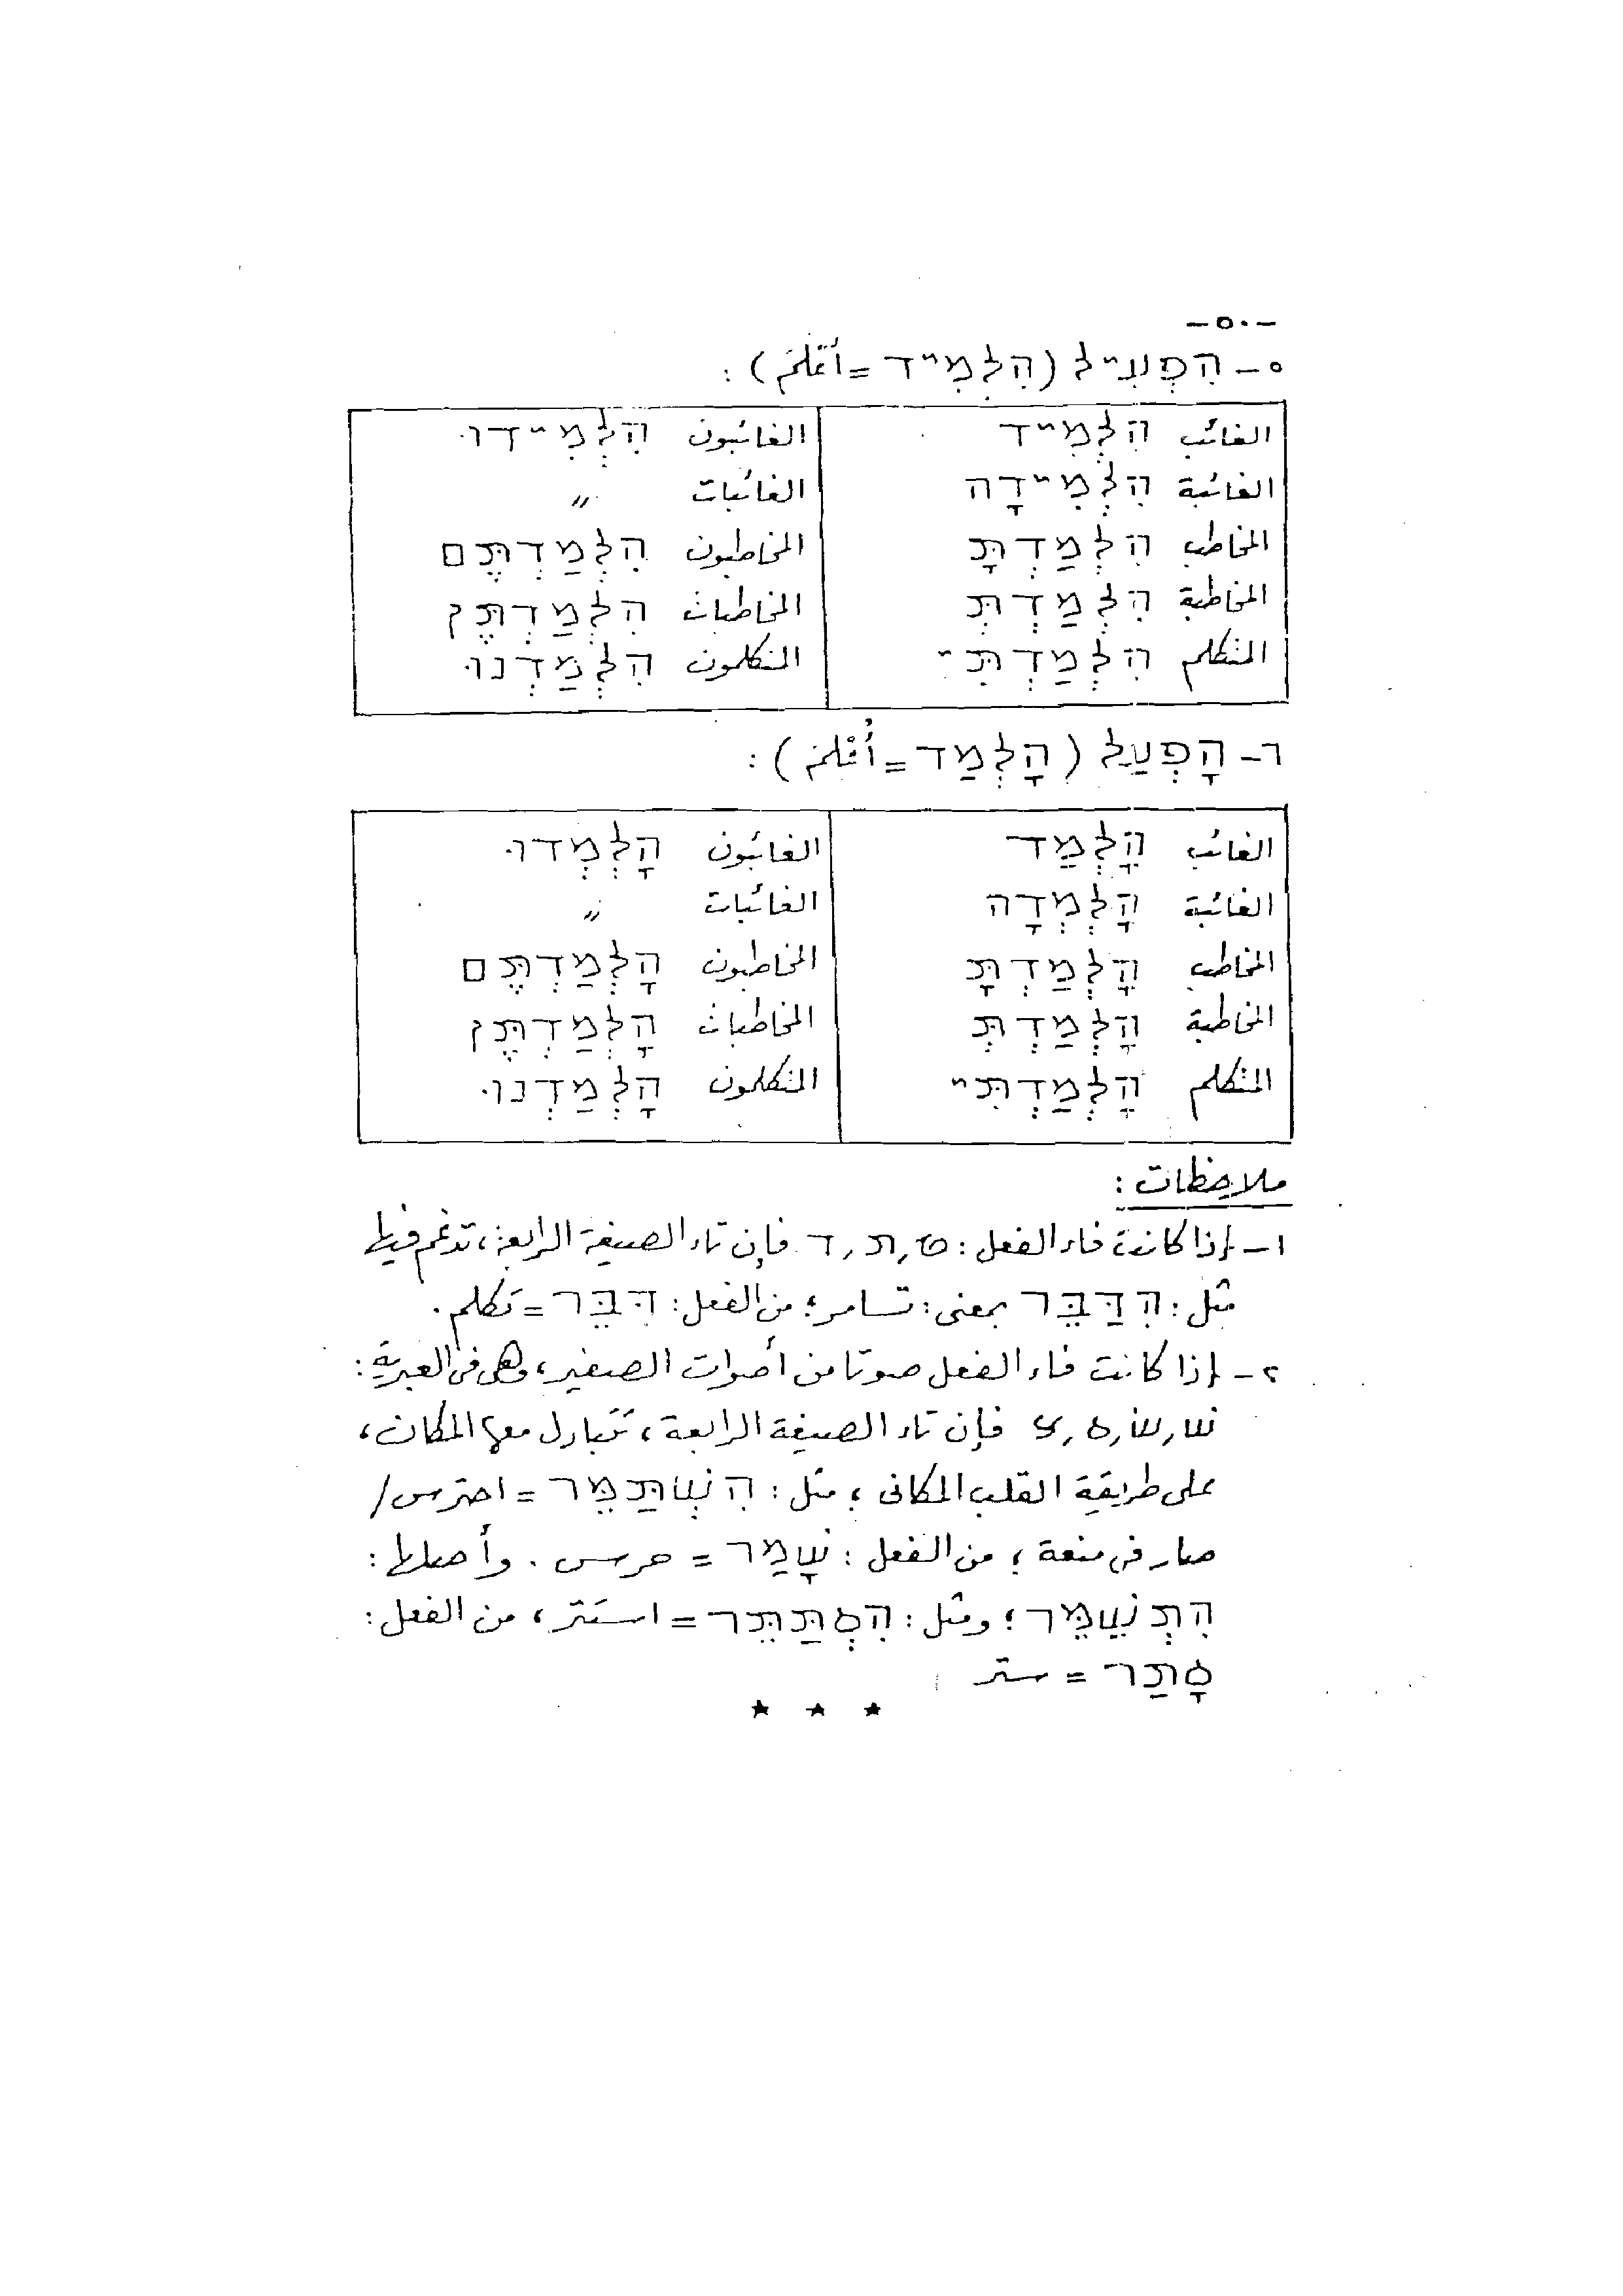 -٥٠-
٥- הִפְעִיל (הִלְמִיד = أَعْلَمَ) :
الغائب הִלְמִיד الغائبون הִלְמִידוּ
الغائبة הִלְמִידָה الغائبات 〃
المخاطب הִלְמַדְתָּ المخاطبون הִלְמַדְתֶּם
المخاطبة הִלְמַדְתְּ المخاطبات הִלְמַדְתֶּן
المتكلم הִלְמַדְתִּי المتكلمون הִלְמַדְנוּ
٦- הָפְעַל (הָלְמַד = أُعْلِمَ) :
الغائب הָלְמַד الغائبون הָלְמְדוּ
الغائبة הָלְמְדָה الغائبات 〃
المخاطب הָלְמַדְתָּ المخاطبون הָלְמַדְתֶּם
المخاطبة הָלְמַדְתְּ المخاطبات הָלְמַדְתֶּן
المتكلم הָלְמַדְתִּי المتكلمون הָלְמַדְנוּ
ملاحظات :
١- إذا كانت فاء الفعل : ט, ת, ד فإن تاء الصيغة الرابعة، تدغم فيها
مثل : הִדַּבֵּר بمعنى : تسامر؛ من الفعل : דִּבֵּר = تكلم .
٢- إذا كانت فاء الفعل صوتا من أصوات الصفير، وهى فى العبرية :
שׁ, שׂ, ס, צ فإن تاء الصيغة الرابعة، تتبادل معها المكان،
على طريقة القلب المكانى ؛ مثل : הִשְׁתַּמֵּר = احترس/
صار فى منعة ؛ من الفعل : שָׁמַר = حرس . وأصلها :
הִתְשַׁמֵּר ؛ ومثل : הִסְתַּתֵּר = استتر، من الفعل :
סָתַר = ستر
★ ★ ★